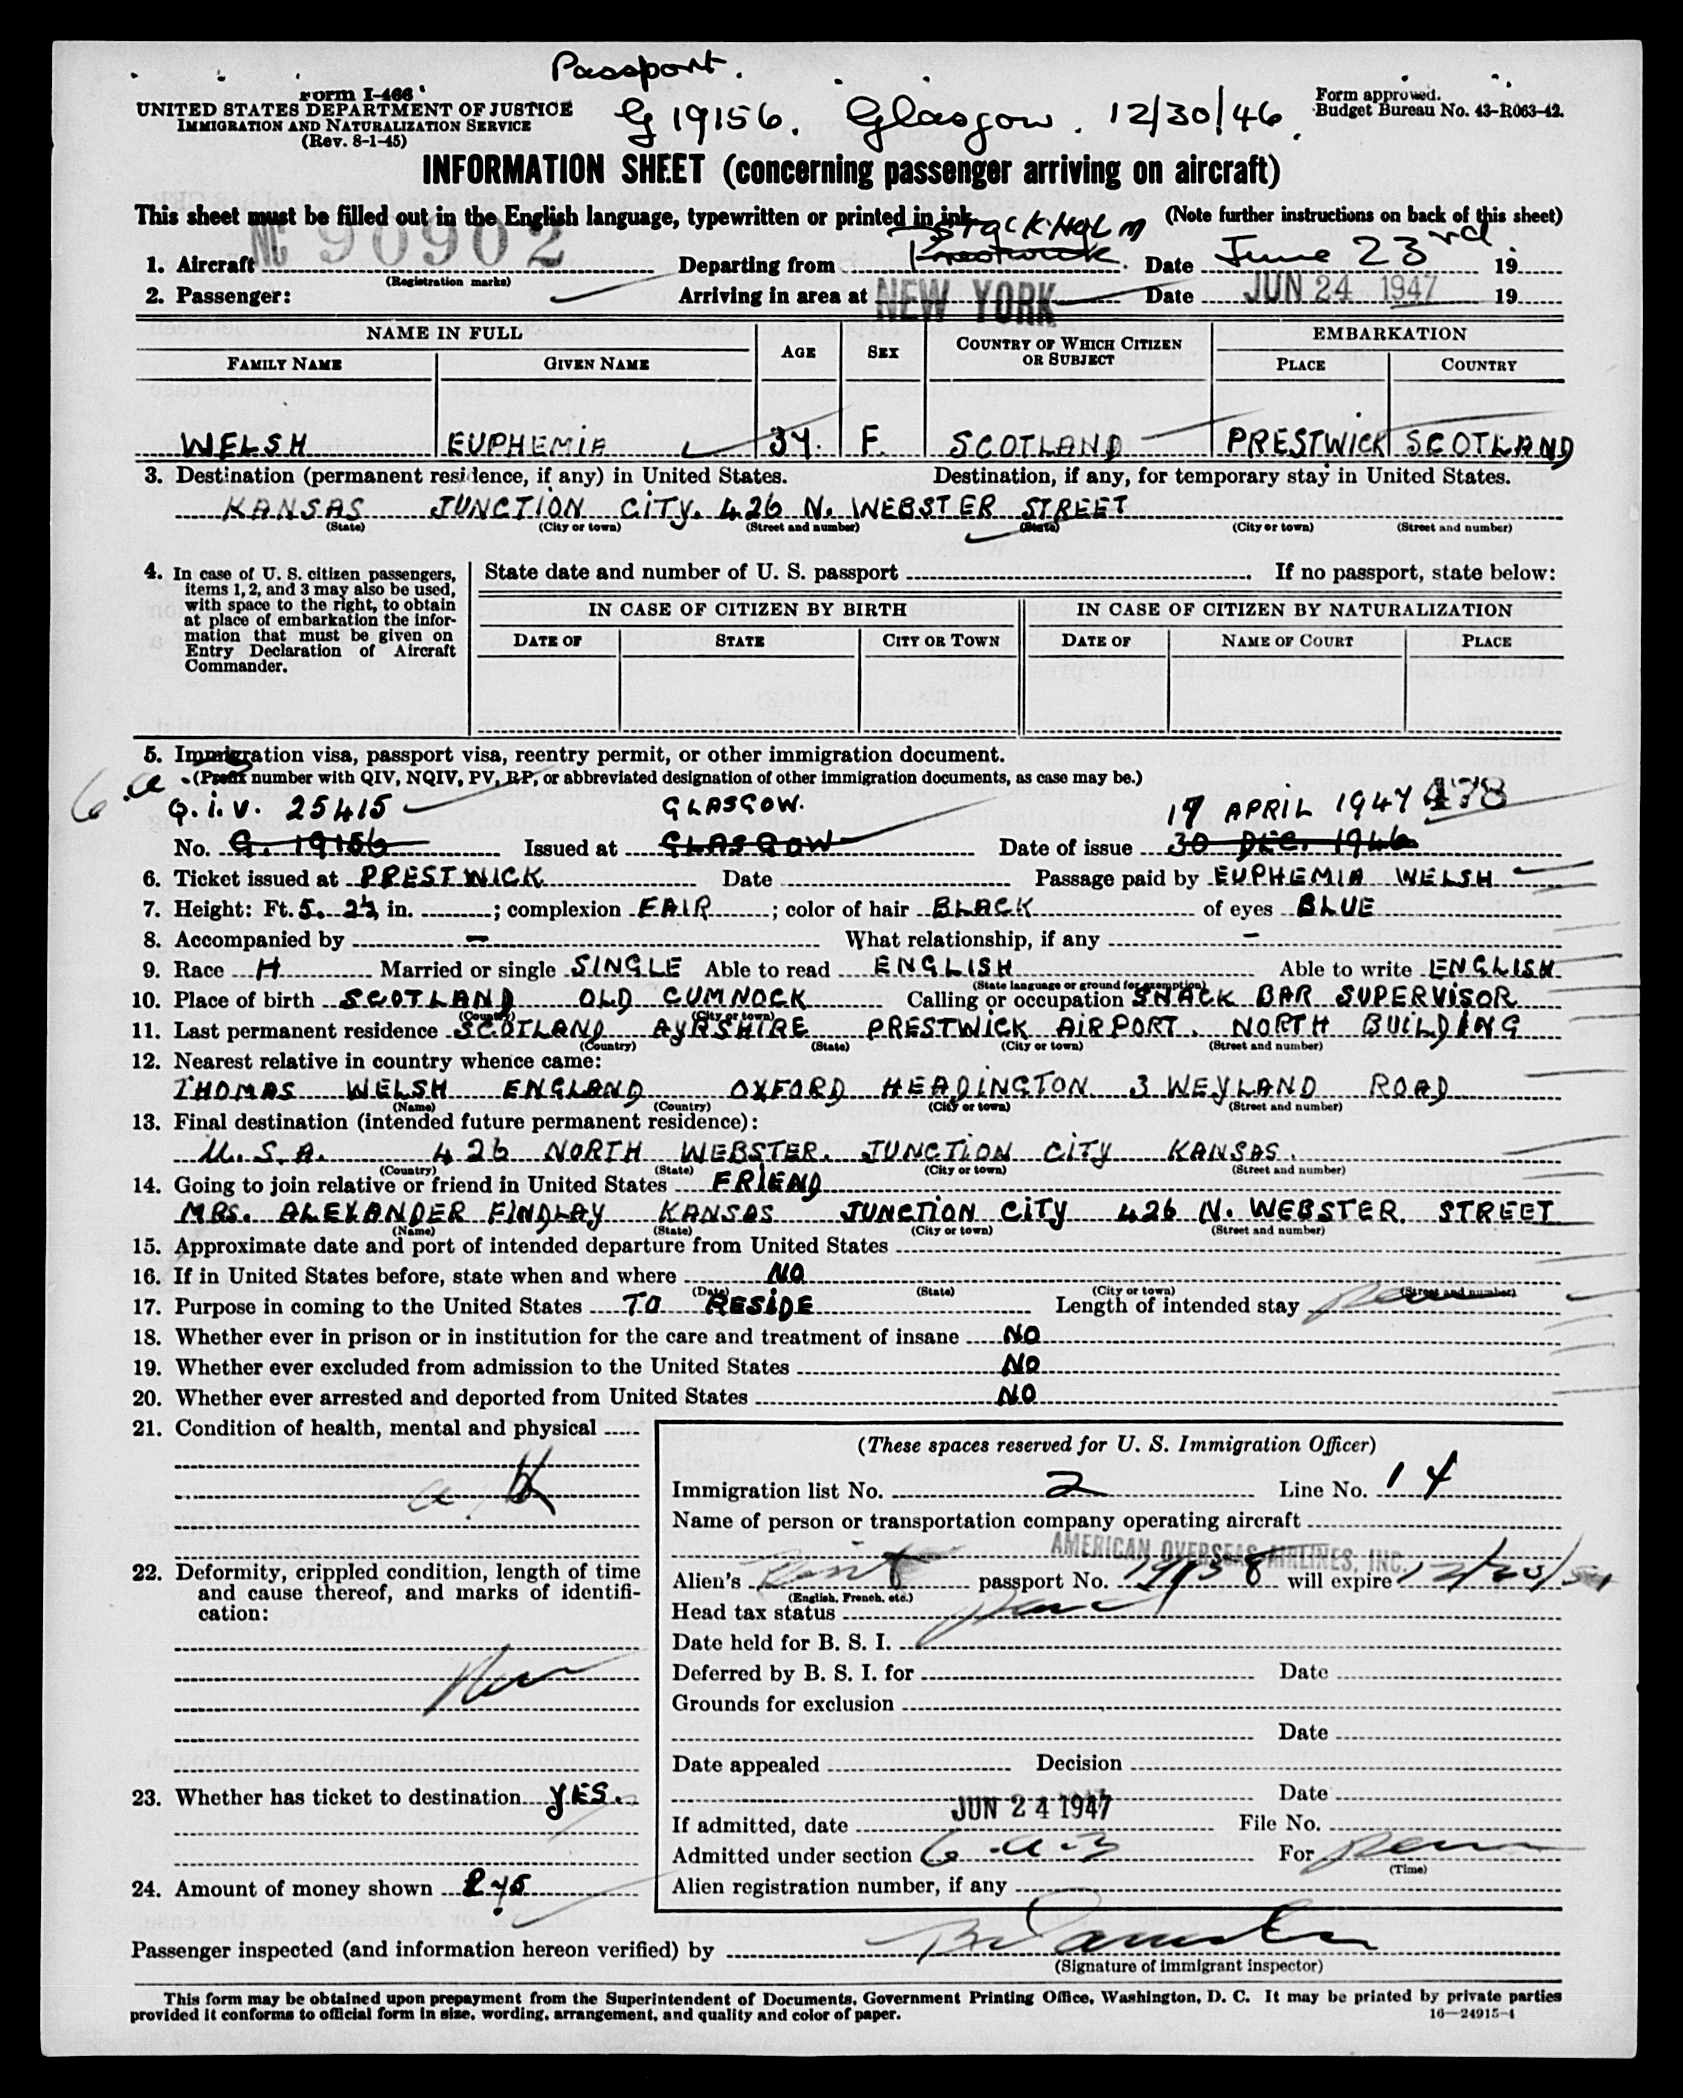 Passport.
Form I-466
UNITED STATES DEPARTMENT OF JUSTICE
IMMIGRATION AND NATURALIZATION SERVICE
(Rev. 8-1-45)
G 19156. Glasgow. 12/30/46.
Form approved.
Budget Bureau No. 43-R063-42.
INFORMATION SHEET (concerning passenger arriving on aircraft)
This sheet must be filled out in the English language, typewritten or printed in ink. (Note further instructions on back of this sheet)
STOCKHOLM
1. Aircraft NC 90902 Departing from Prestwick Date June 23rd. 19
(Registration marks)
2. Passenger: Arriving in area at NEW YORK Date JUN 24 1947 19
NAME IN FULL AGE SEX COUNTRY OF WHICH CITIZEN OR SUBJECT EMBARKATION
FAMILY NAME GIVEN NAME PLACE COUNTRY
WELSH EUPHEMIA 34. F. SCOTLAND PRESTWICK SCOTLAND
3. Destination (permanent residence, if any) in United States. Destination, if any, for temporary stay in United States.
KANSAS JUNCTION CITY. 426 N. WEBSTER STREET
(State) (City or town) (Street and number) (State) (City or town) (Street and number)
4. In case of U. S. citizen passengers, items 1, 2, and 3 may also be used, with space to the right, to obtain at place of embarkation the information that must be given on Entry Declaration of Aircraft Commander.
State date and number of U. S. passport . If no passport, state below:
IN CASE OF CITIZEN BY BIRTH IN CASE OF CITIZEN BY NATURALIZATION
DATE OF STATE CITY OR TOWN DATE OF NAME OF COURT PLACE
5. Immigration visa, passport visa, reentry permit, or other immigration document.
(Prefix number with QIV, NQIV, PV, RP, or abbreviated designation of other immigration documents, as case may be.)
Q.I.V. 25415 GLASGOW. 17 APRIL 1947 478
No. G. 19156 Issued at GLASGOW Date of issue 30 DEC. 1946
6. Ticket issued at PRESTWICK Date Passage paid by EUPHEMIA WELSH
7. Height: Ft. 5. 2½ in. ; complexion FAIR ; color of hair BLACK of eyes BLUE
8. Accompanied by - What relationship, if any -
9. Race H Married or single SINGLE Able to read ENGLISH Able to write ENGLISH
(State language or ground for exemption)
10. Place of birth SCOTLAND OLD CUMNOCK Calling or occupation SNACK BAR SUPERVISOR
(Country) (City or town)
11. Last permanent residence SCOTLAND AYRSHIRE PRESTWICK AIRPORT. NORTH BUILDING
(Country) (State) (City or town) (Street and number)
12. Nearest relative in country whence came:
THOMAS WELSH ENGLAND OXFORD HEADINGTON 3 WEYLAND ROAD
(Name) (Country) (City or town) (Street and number)
13. Final destination (intended future permanent residence):
U.S.A. 426 NORTH WEBSTER. JUNCTION CITY KANSAS.
(Country) (State) (City or town) (Street and number)
14. Going to join relative or friend in United States FRIEND
MRS. ALEXANDER FINDLAY KANSAS JUNCTION CITY 426 N. WEBSTER. STREET
(Name) (State) (City or town) (Street and number)
15. Approximate date and port of intended departure from United States
16. If in United States before, state when and where NO
(Date) (State) (City or town) (Street and number)
17. Purpose in coming to the United States TO RESIDE Length of intended stay perm
18. Whether ever in prison or in institution for the care and treatment of insane NO
19. Whether ever excluded from admission to the United States NO
20. Whether ever arrested and deported from United States NO
21. Condition of health, mental and physical
(These spaces reserved for U. S. Immigration Officer)
Immigration list No. 2 Line No. 14
Name of person or transportation company operating aircraft
AMERICAN OVERSEAS AIRLINES, INC.
22. Deformity, crippled condition, length of time and cause thereof, and marks of identification:
Alien's passport No. will expire
(English, French, etc.)
Head tax status
Date held for B. S. I.
Deferred by B. S. I. for Date
Grounds for exclusion
Date
Date appealed Decision
23. Whether has ticket to destination YES.
Date
If admitted, date JUN 24 1947 File No.
Admitted under section 6-a-3 For perm
(Time)
24. Amount of money shown £45
Alien registration number, if any
Passenger inspected (and information hereon verified) by
(Signature of immigrant inspector)
This form may be obtained upon prepayment from the Superintendent of Documents, Government Printing Office, Washington, D. C. It may be printed by private parties
provided it conforms to official form in size, wording, arrangement, and quality and color of paper.
16—24915-1